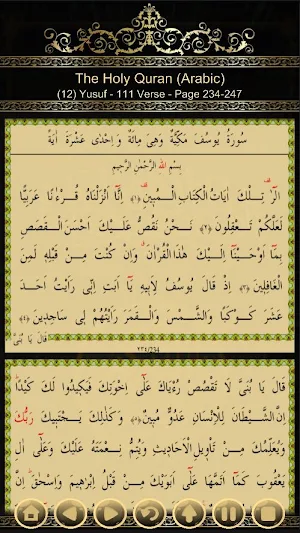 The Holy Quran (Arabic)
(12) Yusuf - 111 Verse - Page 234-247
سُورَةُ يُوسُفَ مَكِّيَّةٌ وَهِىَ مِائَةٌ وَاِحْدٰى عَشْرَةَ اٰيَةً
بِسْمِ اللهِ الرَّحْمٰنِ الرَّحِيمِ
الٓرٰ تِلْكَ اٰيَاتُ الْكِتَابِ الْمُبِينِ ﴿١﴾ اِنَّٓا اَنْزَلْنَاهُ قُرْءٰنًا عَرَبِيًّا
لَعَلَّكُمْ تَعْقِلُونَ ﴿٢﴾ نَحْنُ نَقُصُّ عَلَيْكَ اَحْسَنَ الْقَصَصِ
بِمَٓا اَوْحَيْنَٓا اِلَيْكَ هٰذَا الْقُرْاٰنَ وَاِنْ كُنْتَ مِنْ قَبْلِهِ لَمِنَ
الْغَافِلِينَ ﴿٣﴾ اِذْ قَالَ يُوسُفُ لِاَبِيهِ يَٓا اَبَتِ اِنِّى رَاَيْتُ اَحَدَ
عَشَرَ كَوْكَبًا وَالشَّمْسَ وَالْقَمَرَ رَاَيْتُهُمْ لِى سَاجِدِينَ ﴿٤﴾
قَالَ يَا بُنَىَّ
٢٣٤/234
قَالَ يَا بُنَىَّ لَا تَقْصُصْ رُؤْيَاكَ عَلٰٓى اِخْوَتِكَ فَيَكِيدُوا لَكَ كَيْدًا
اِنَّ الشَّيْطَانَ لِلْاِنْسَانِ عَدُوٌّ مُبِينٌ ﴿٥﴾ وَكَذٰلِكَ يَجْتَبِيكَ رَبُّكَ
وَيُعَلِّمُكَ مِنْ تَاْوِيلِ الْاَحَادِيثِ وَيُتِمُّ نِعْمَتَهُ عَلَيْكَ وَعَلٰٓى اٰلِ
يَعْقُوبَ كَمَٓا اَتَمَّهَا عَلٰٓى اَبَوَيْكَ مِنْ قَبْلُ اِبْرٰهِيمَ وَاِسْحٰقَ اِنَّ